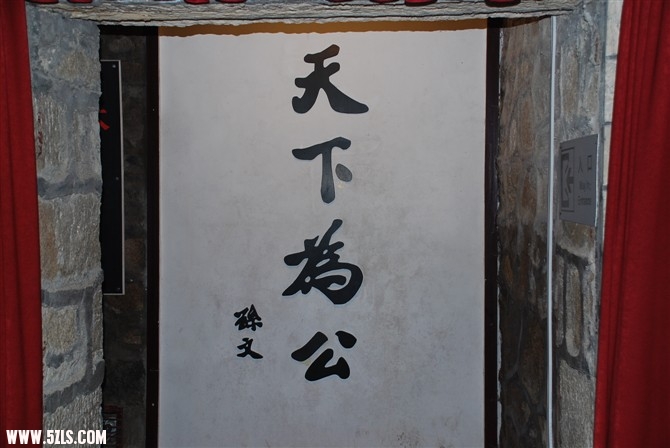 天下為公
孫文
入口
WWW.5ZLS.COM